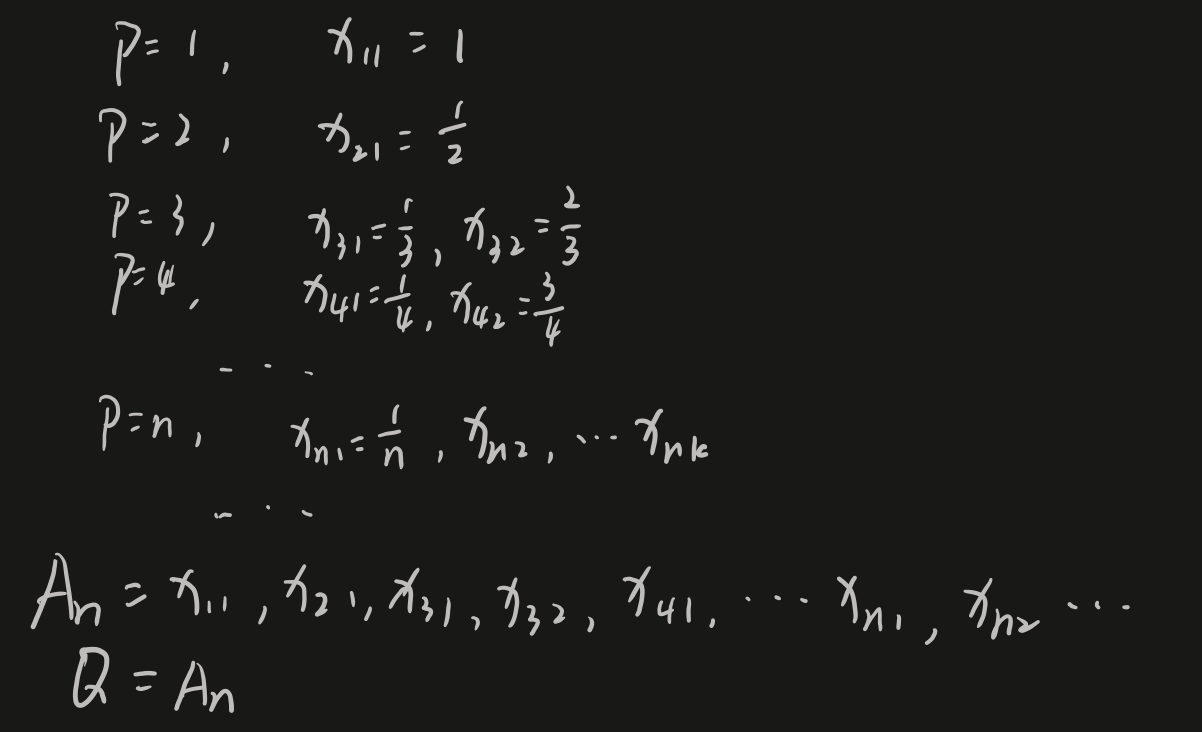 P = 1 , x₁₁ = 1
P = 2 , x₂₁ = 1/2
P = 3 , x₃₁ = 1/3 , x₃₂ = 2/3
P = 4 , x₄₁ = 1/4 , x₄₂ = 3/4
- · · -
P = n , xₙ₁ = 1/n , xₙ₂ , ··· xₙₖ
- · · -
Aₙ = x₁₁ , x₂₁ , x₃₁ , x₃₂ , x₄₁ , ··· xₙ₁ , xₙ₂ ···
Q = Aₙ